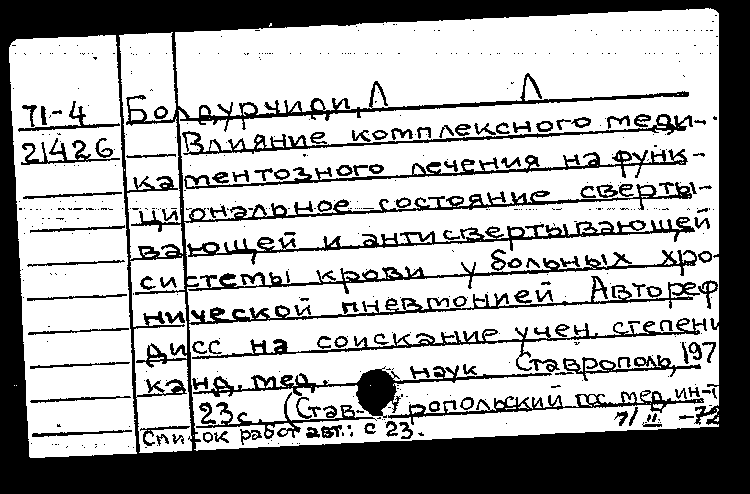 71-4 Болдурчиди, Л Л
21426 Влияние комплексного меди-
каментозного лечения на функ-
циональное состояние сверты-
вающей и антисвертывающей
системы крови у больных хро-
нической пневмонией. Автореф
дисс. на соискание учен. степени
канд. мед. наук. Ставрополь, 197
23 с. (Став-ропольский гос. мед. ин-т
Список работ авт.: с 23.
71 II -72